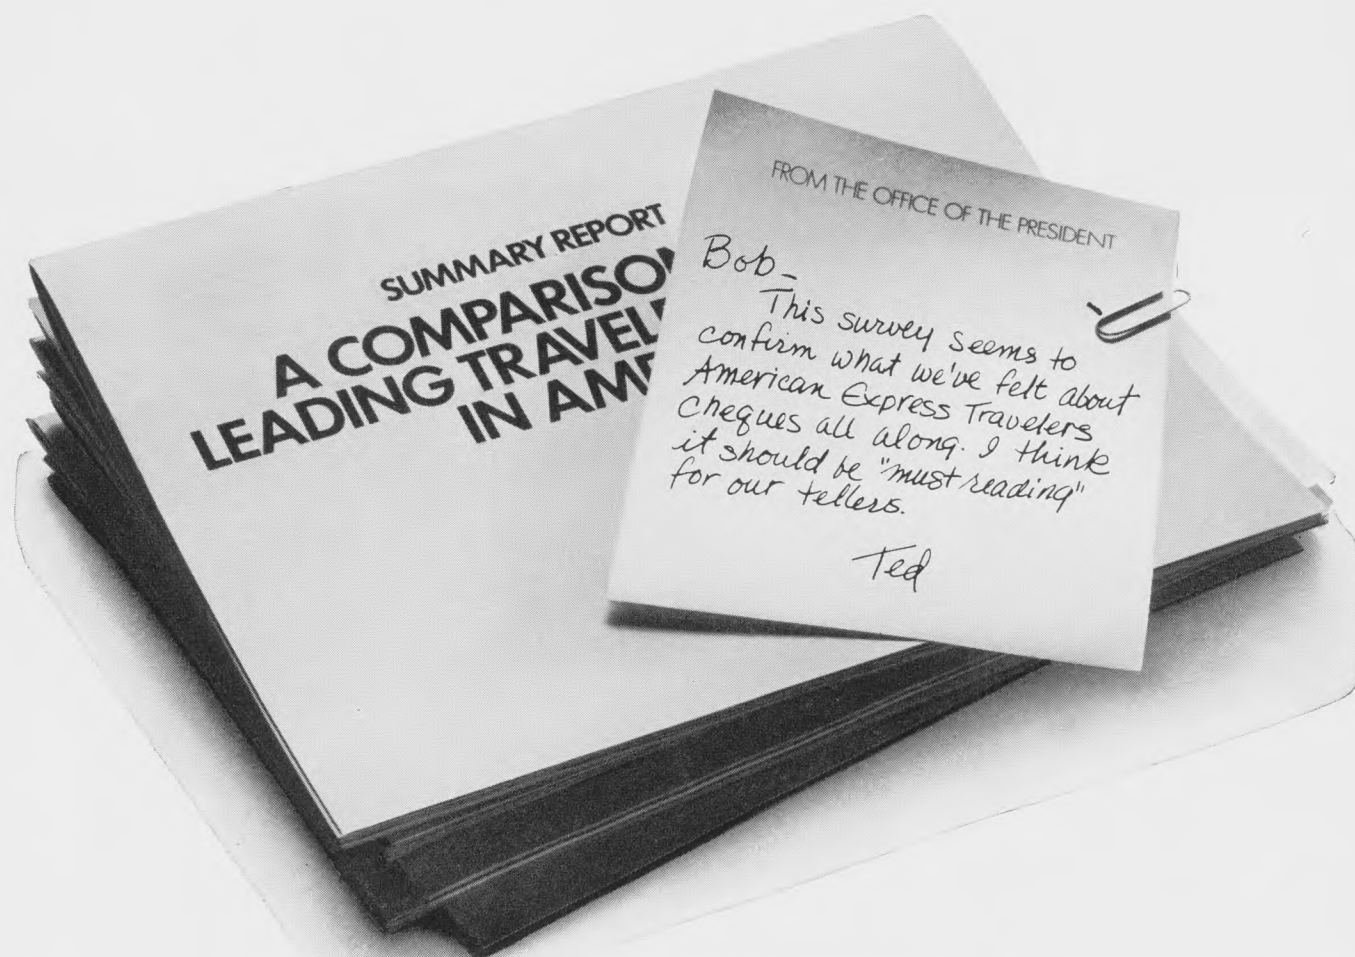 SUMMARY REPORT
A COMPARISON
LEADING TRAVEL
IN AM
FROM THE OFFICE OF THE PRESIDENT
Bob-
This survey seems to
confirm what we've felt about
American Express Travelers
Cheques all along. I think
it should be "must reading"
for our tellers.
Ted